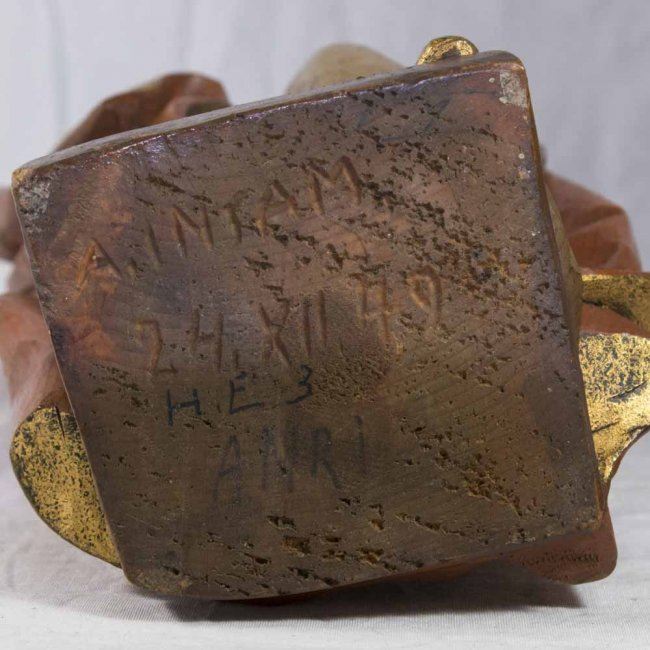 A. INTAM
24. XII 49
HE 3
ANRI